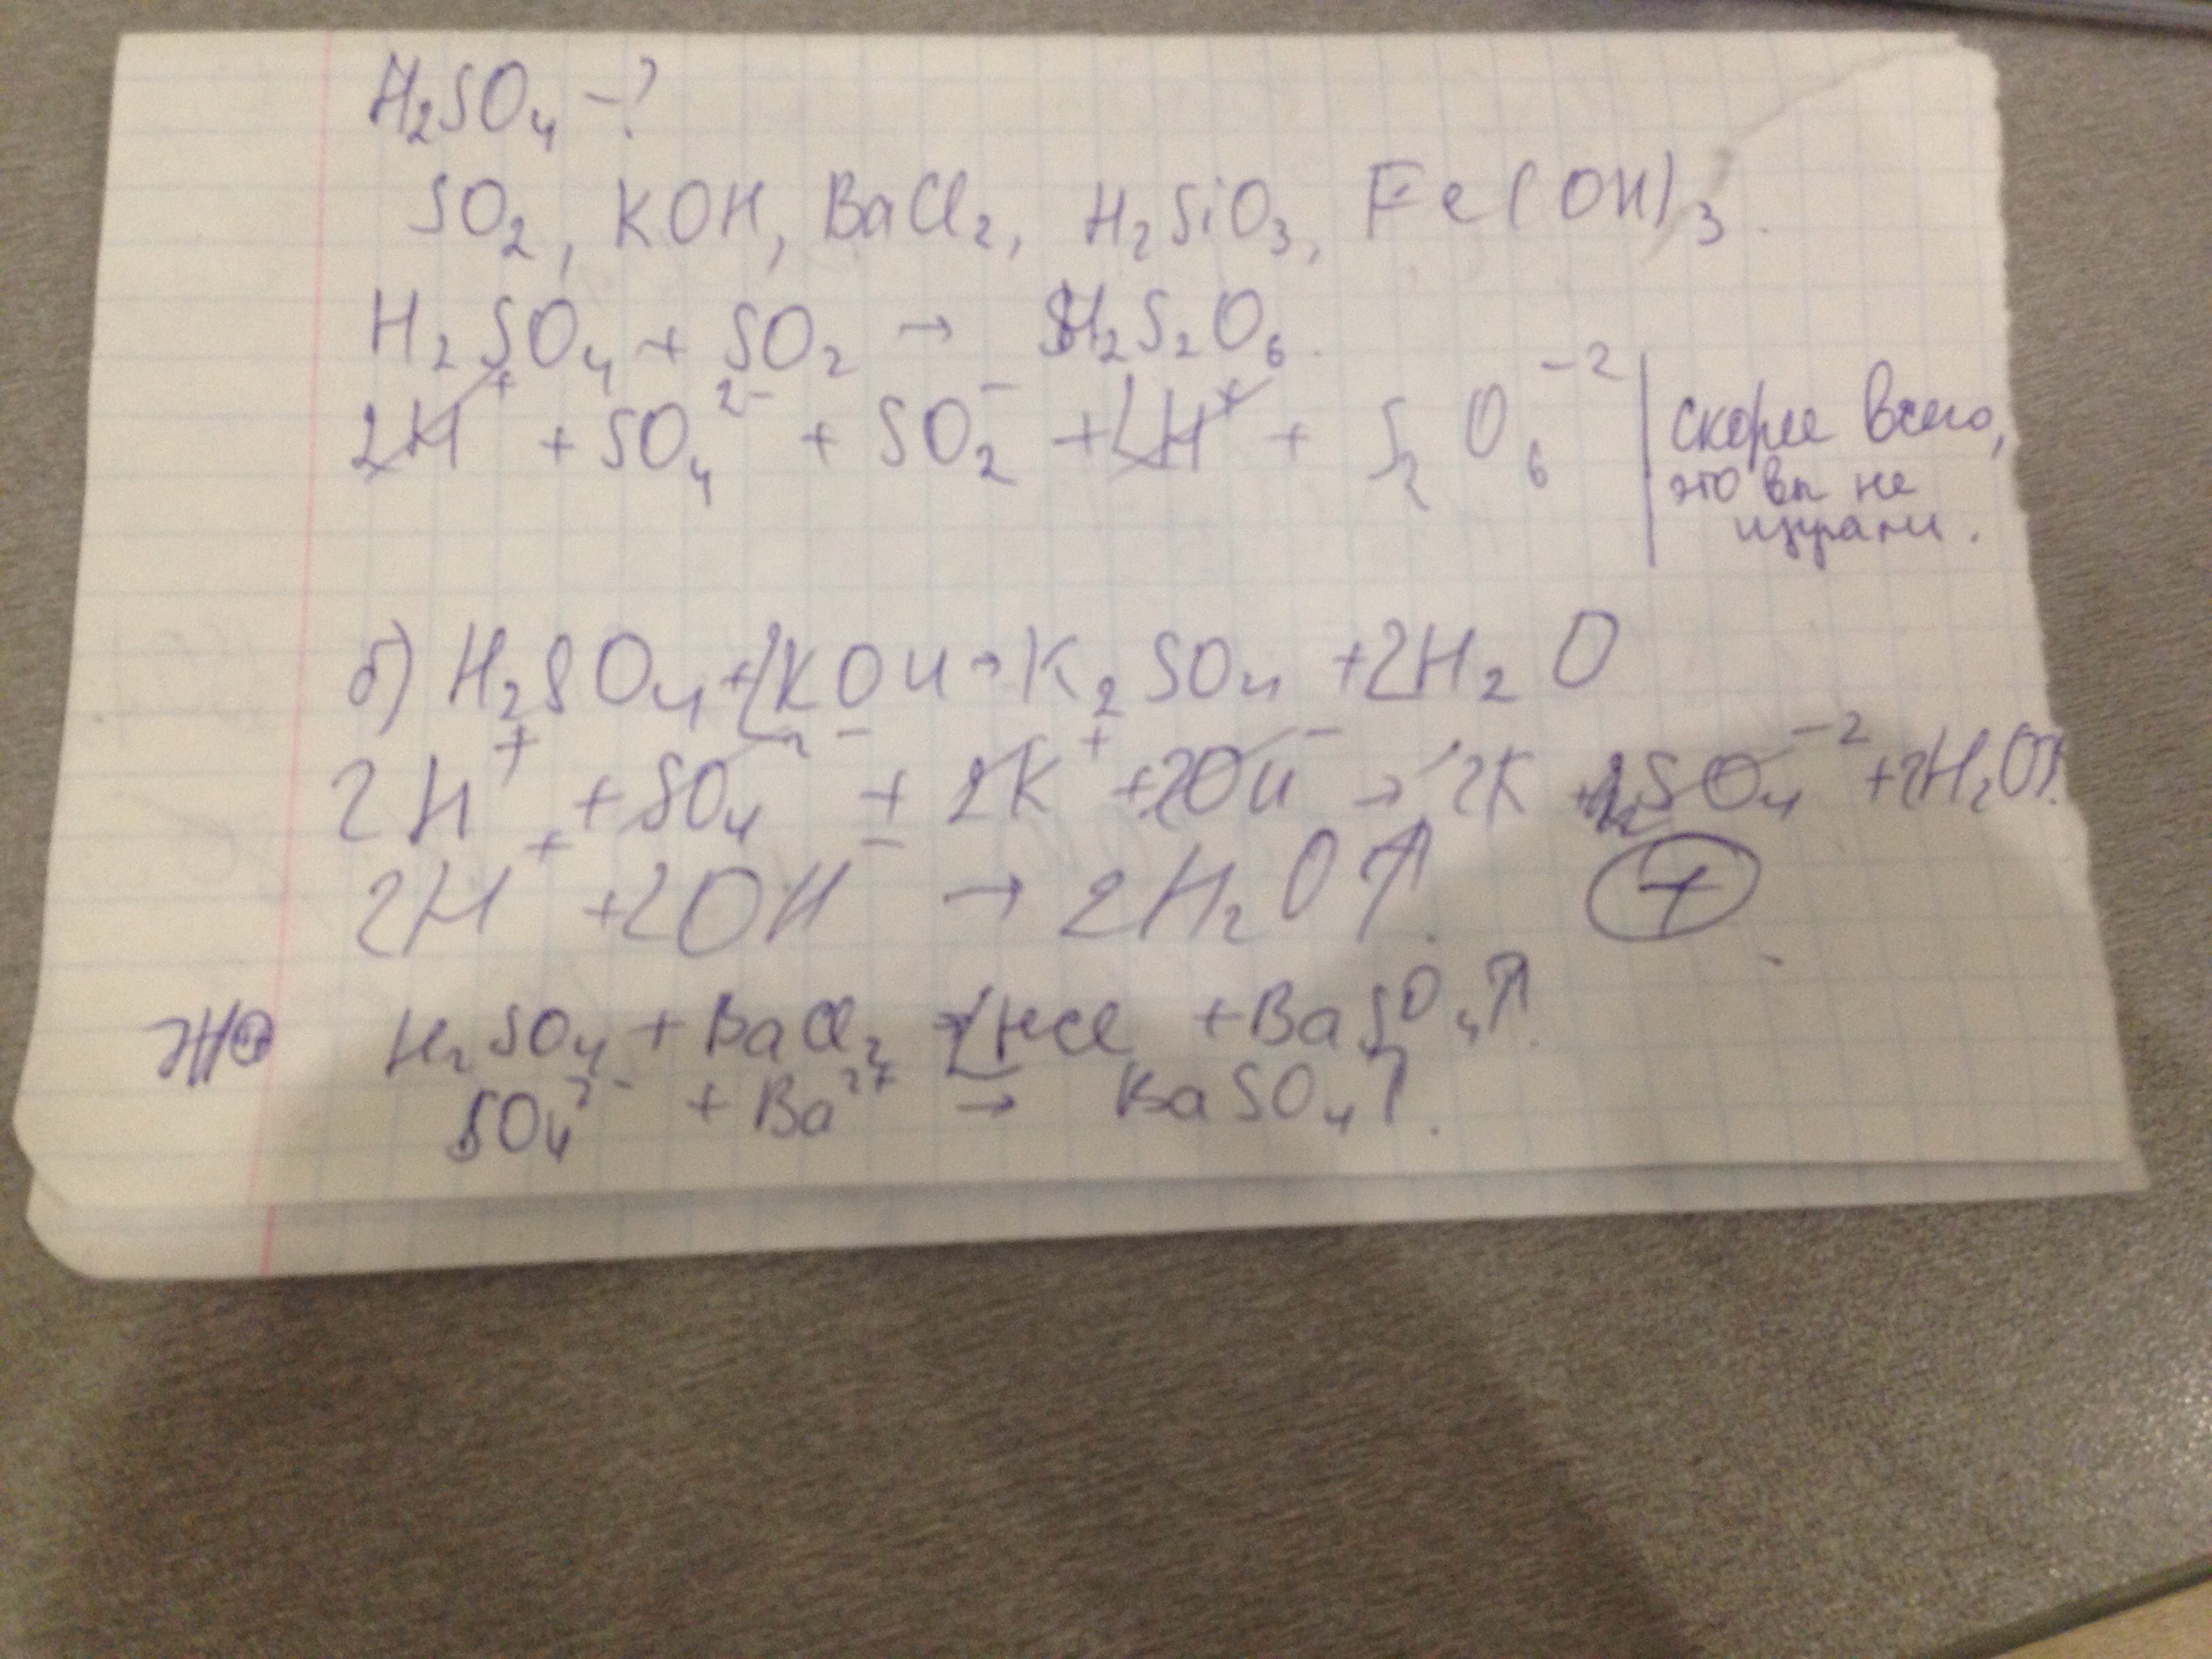 H₂SO₄ -?
SO₂, KOH, BaCl₂, H₂SiO₃, Fe(OH)₃.
H₂SO₄ + SO₂ → H₂S₂O₆.
2H⁺ + SO₄²⁻ + SO₂⁻ + 2H⁺ + S₂O₆⁻²
скорее всего,
это вы не
изучали.
б) H₂SO₄ + 2KOH → K₂SO₄ + 2H₂O
2H⁺ + SO₄²⁻ + 2K⁺ + 2OH⁻ → 2K SO₄⁻² + 2H₂O↑.
2H⁺ + 2OH⁻ → 2H₂O↑. +
H₂SO₄ + BaCl₂ → 2HCl + BaSO₄↑.
SO₄²⁻ + Ba²⁺ → BaSO₄↑.